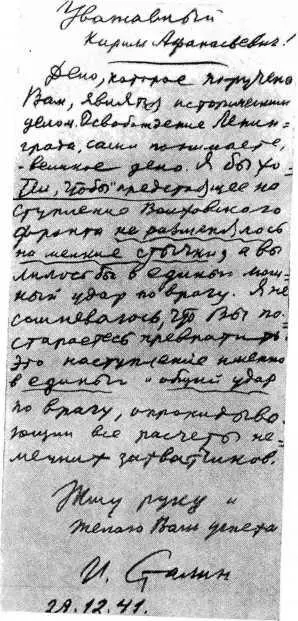 Уважаемый
Кирилл Афанасьевич!
Дело, которое поручено
Вам, является историческим
делом. Освобождение Ленин-
града, сами понимаете,
- великое дело. Я бы хо-
тел, чтобы предстоящее на-
ступление Волховского
фронта не разменялось
на мелкие стычки, а вы-
лилось бы в единый мощ-
ный удар по врагу. Я не
сомневаюсь, что Вы по-
стараетесь превратить
это наступление именно
в единый и общий удар
по врагу, опрокидываю-
ющий все расчеты не-
мецких захватчиков.
Жму руку и
желаю Вам успеха
И. Сталин
29.12.41.